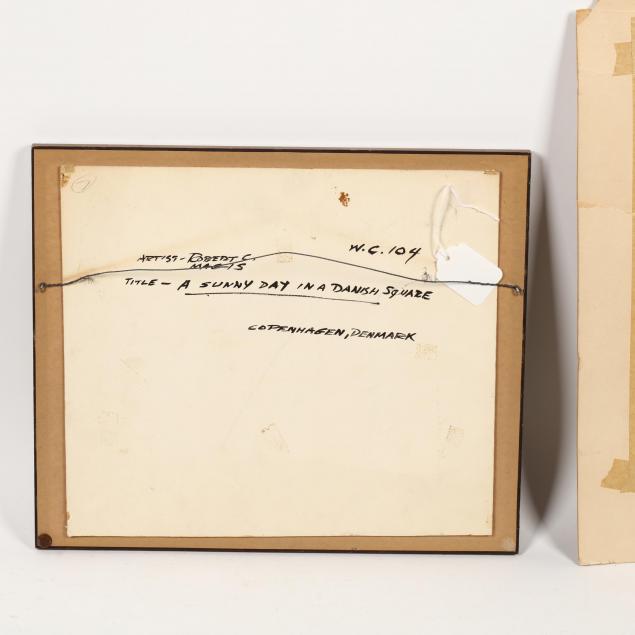 W.C. 104
ARTIST - ROBERT C.
MAGIS
TITLE - A SUNNY DAY IN A DANISH SQUARE
COPENHAGEN, DENMARK